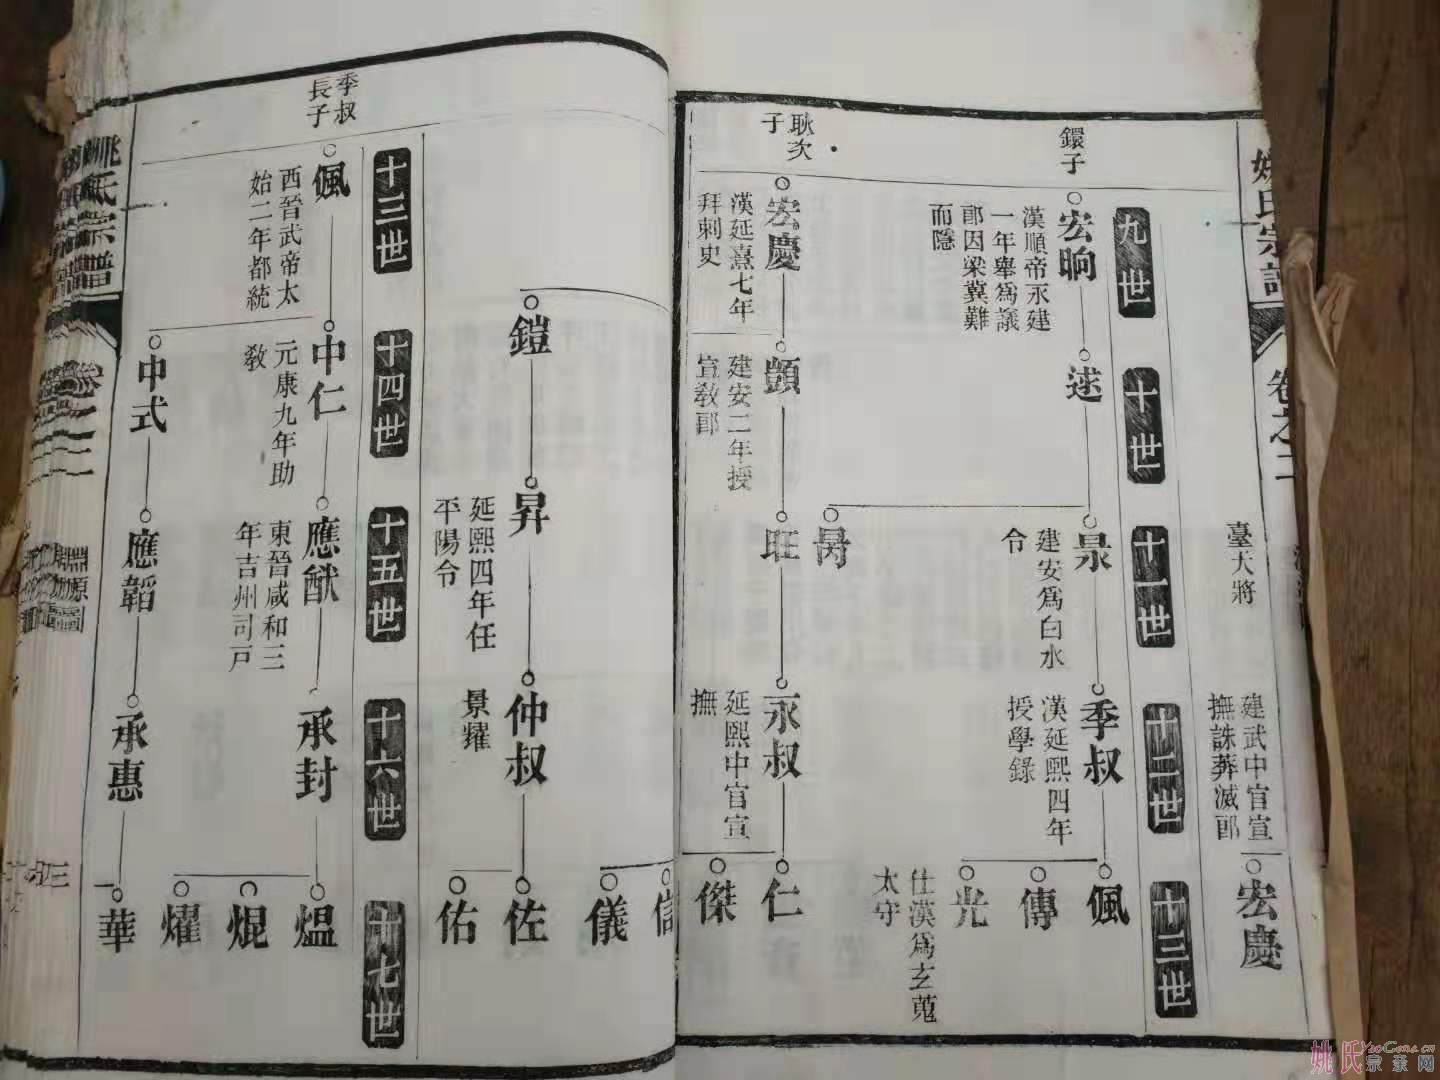 姚氏宗譜
卷之二
臺大將
建武中官宣
撫誅莽滅郖
宏慶
九世
十世
十一世
十二世
十三世
鐶子
宏晌
漢順帝永建
一年舉爲議
郖因梁冀難
而隱
逑
昦
建安爲白水
令
季叔
漢延熙四年
授學錄
偑
傳
光
仕漢爲玄蒐
太守
耿次
子
宏慶
漢延熹七年
拜刺史
顗
建安二年授
宣敎郖
旺
永叔
延熙中官宣
撫
仁
傑
信
儀
鎧
昇
延熙四年任
平陽令
仲叔
景耀
佐
佑
十三世
十四世
十五世
十六世
十七世
季叔
長子
偑
西晉武帝太
始二年都統
中仁
元康九年助
敎
應猷
東晉咸和三
年吉州司戸
承封
熅
焜
燿
中式
應韜
承惠
華
姚氏宗譜
姚氏宗亲网
YaoGens.cn